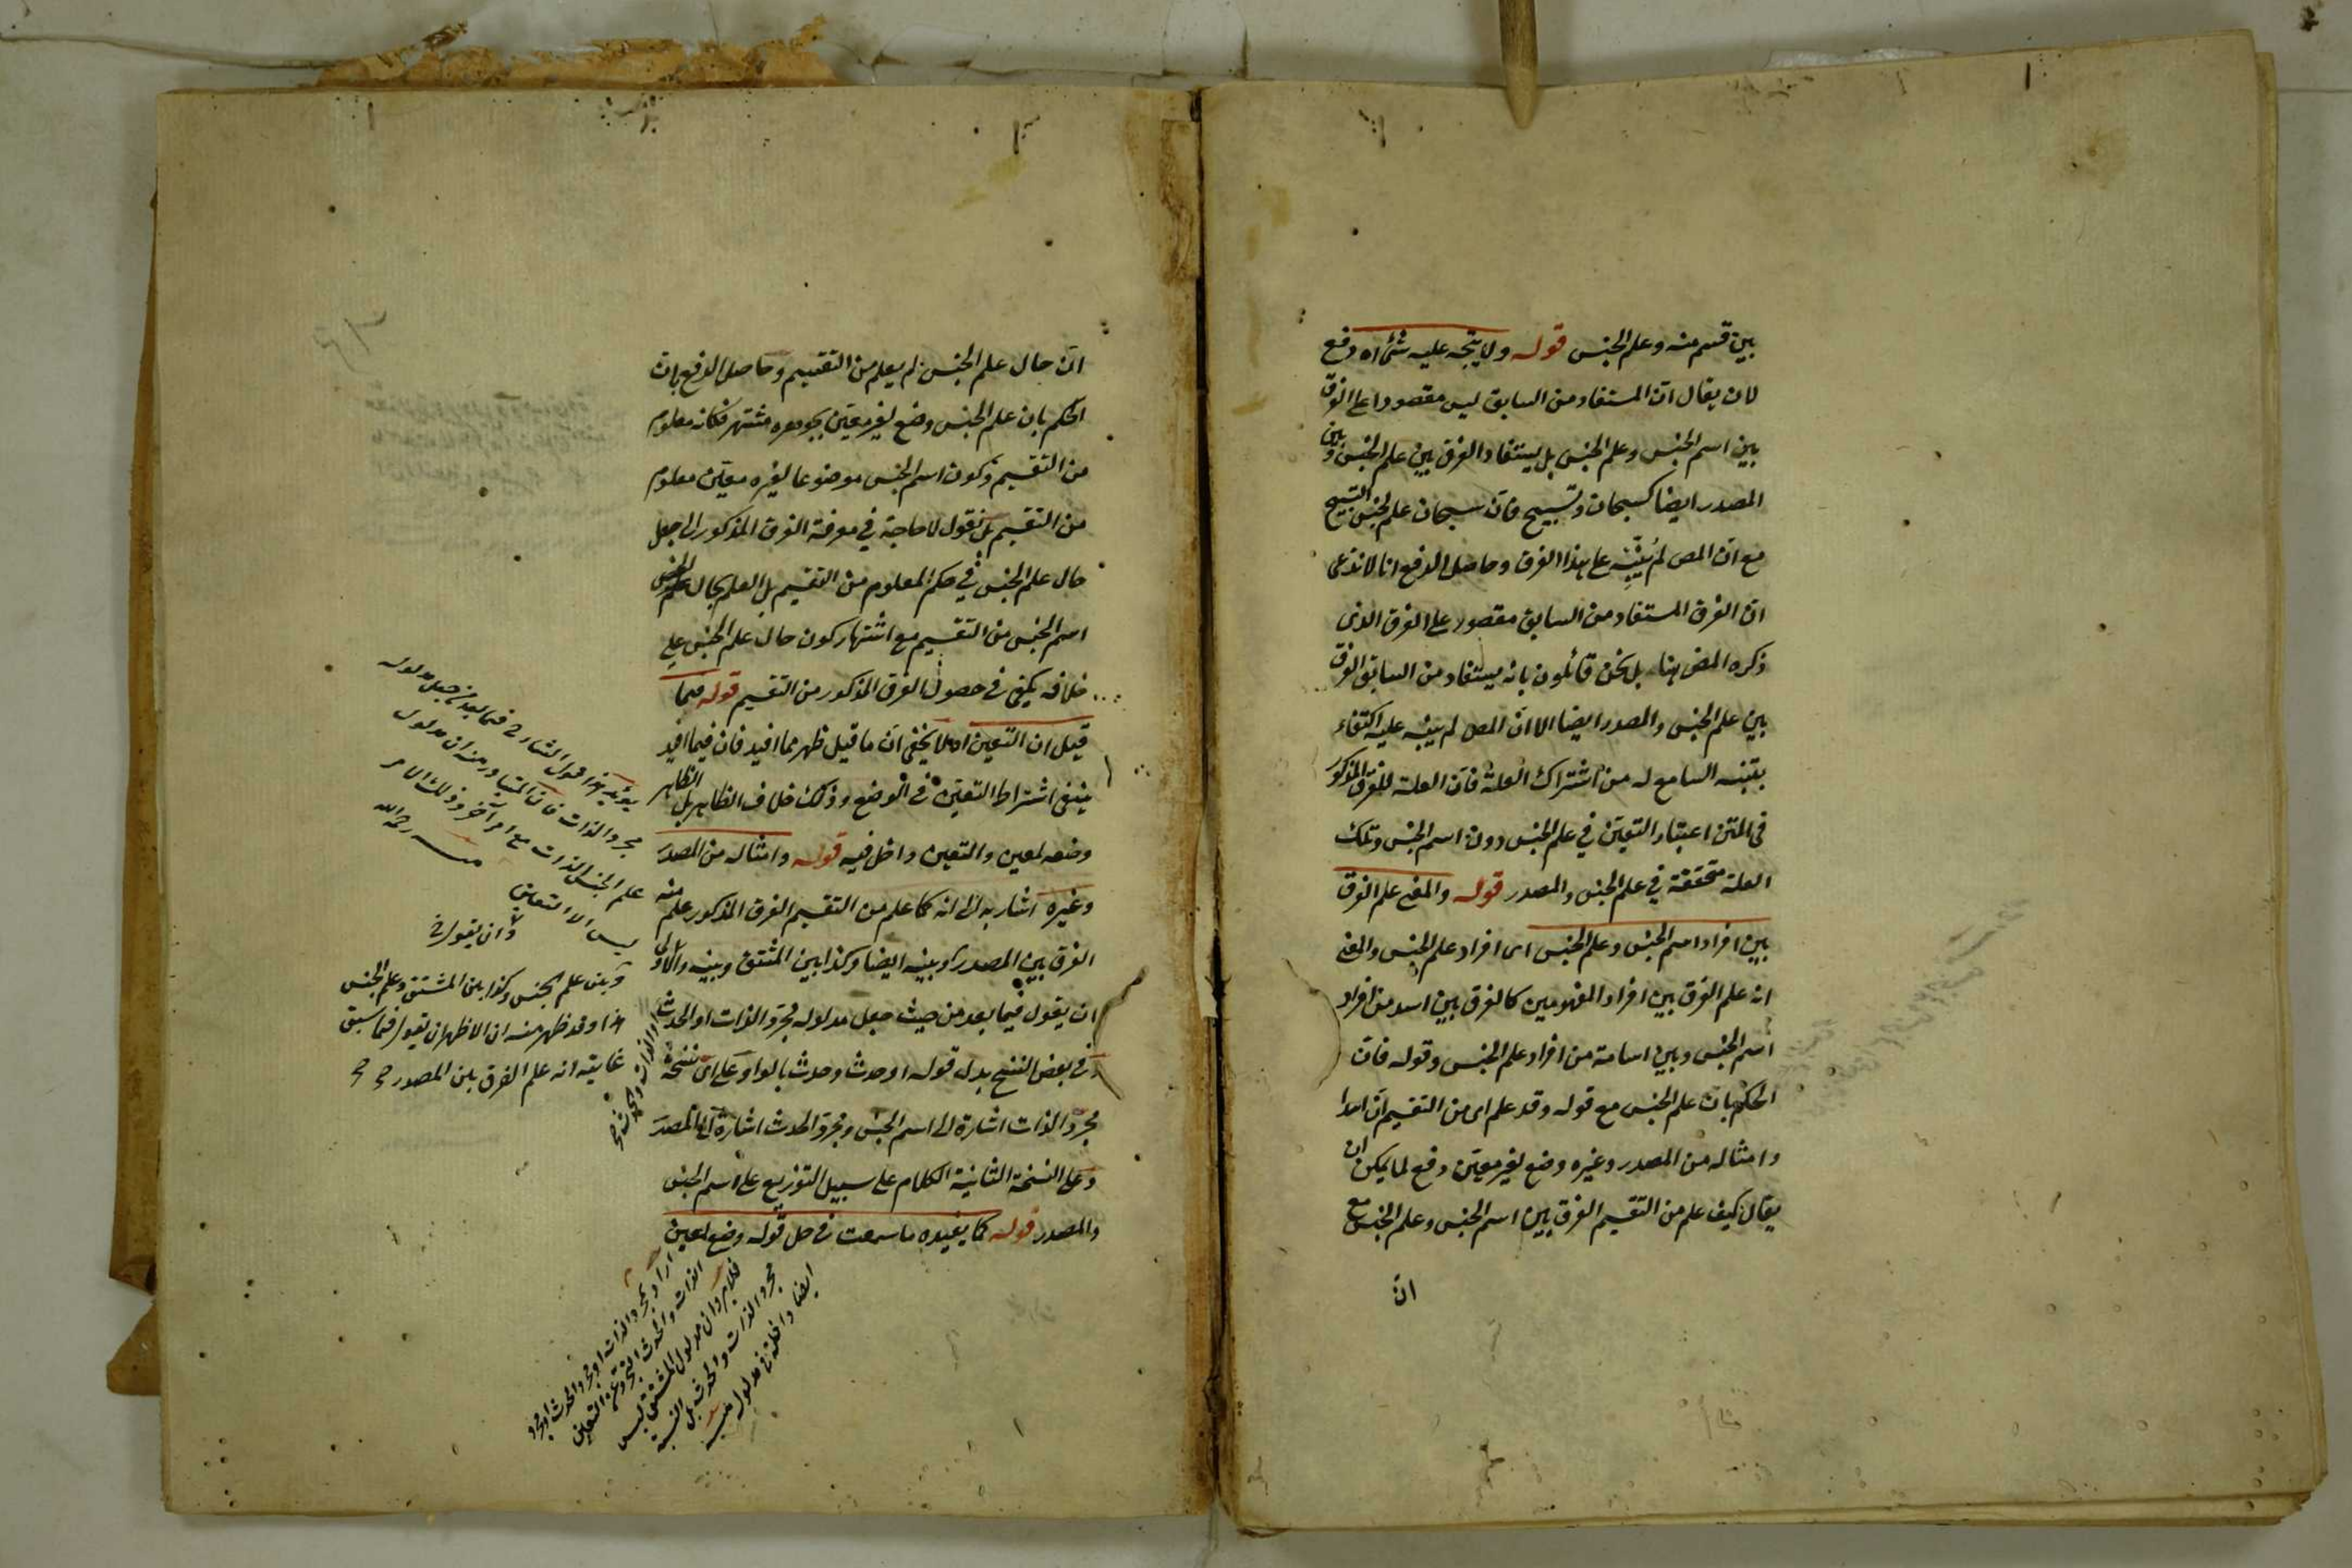 بين قسم منه وعلم الجنس قوله ولا يتجه عليه شئ اه دفع
لان يقال ان المستفاد من السابق ليس مقصورا على الفرق
بين اسم الجنس وعلم الجنس بل يستفاد الفرق بين علم الجنس وبين
المصدر ايضا كسبحان وتسبيح فان سبحان علم لجنس التسبيح
مع ان المص لم ينبه على هذا الفرق وحاصل الدفع انا لا ندعى
ان الفرق المستفاد من السابق مقصور على الفرق الذى
ذكره المص هنا بل نحن قائلون بانه يستفاد من السابق الفرق
بين علم الجنس والمصدر ايضا الا ان المص لم ينبه عليه اكتفاء
بتنبه السامع له من اشتراك العلة فان العلة للفرق المذكور
فى المتن اعتبار التعين في علم الجنس دون اسم الجنس وتلك
العلة متحققة في علم الجنس والمصدر قوله والمعنى علم الفرق
بين افراد اسم الجنس وعلم الجنس اى افراد علم الجنس والمعنى
انه علم الفرق بين افراد المفهومين كالفرق بين اسد من افراد
اسم الجنس وبين اسامة من افراد علم الجنس وقوله فان
الحكم بان علم الجنس مع قوله وقد علم اى من التقسيم ان اسدا
وامثاله من المصدر وغيره وضع لغير معين دفع لما يمكن ان
يقال كيف علم من التقسيم الفرق بين اسم الجنس وعلم الجنس مع
ان
ان حال علم الجنس لم يعلم من التقسيم وحاصل الدفع بان
الحكم بان علم الجنس وضع لغير معين بجوهره مشتهر فكانه معلوم
من التقسيم وكون اسم الجنس موضوعا لغيره معين معلوم
من التقسيم بل نقول لا حاجة في معرفة الفرق المذكور الى جعل
حال علم الجنس في حكم المعلوم من التقسيم بل العلم بحال
اسم الجنس من التقسيم مع اشتهار كون حال علم الجنس على
خلافه يكفى فى حصول الفرق المذكور من التقسيم قوله فيما
قيل ان التعين اه لا يخفى ان ما قيل ظهر مما افيد فان فيما افيد
ينفى اشتراط التعين فى الوضع وذلك خلاف الظاهر بل الظاهر
وضعه لمعين والتعين داخل فيه قوله وامثاله من المصدر
وغيره اشار به الى انه كما علم من التقسيم الفرق المذكور علم منه
الفرق بين المصدر وبينه ايضا وكذا بين المشتق وبينه والاولى
ان يقول فيما بعد من حيث جعل مدلوله مجرد الذات او الحدث
وفى بعض النسخ بدل قوله او حدث وحدث بالواو وعلى اى نسخة
مجرد الذات اشارة الى اسم الجنس ومجرد الحدث اشارة الى المصدر
وعلى النسخة الثانية الكلام على سبيل التوزيع على اسم الجنس
والمصدر قوله كما يفيده ما سمعت فى حل قوله وضع لمعين
يؤيد هذا قول الشارح فيما بعد من جعل مدلوله
مجرد الذات فان المتبادر منه ان مدلول
علم الجنس الذات مع امر آخر وذلك الامر
ليس الا التعين
منه رحمه الله
وان يقول
وبين علم الجنس وكذا بين المشتق وعلم الجنس
هذا وقد ظهر منه ان الاظهر ان يقول فيما سبق
غايته انه علم الفرق بين المصدر
اراد بمجرد الذات او مجرد الحدث او مجرد
الذات والحدث التجرد عن التعين
فلا يرد ان مدلول المشتق ليس
مجرد الذات والحدث بل النسبة
ايضا داخلة فى مدلوله منه